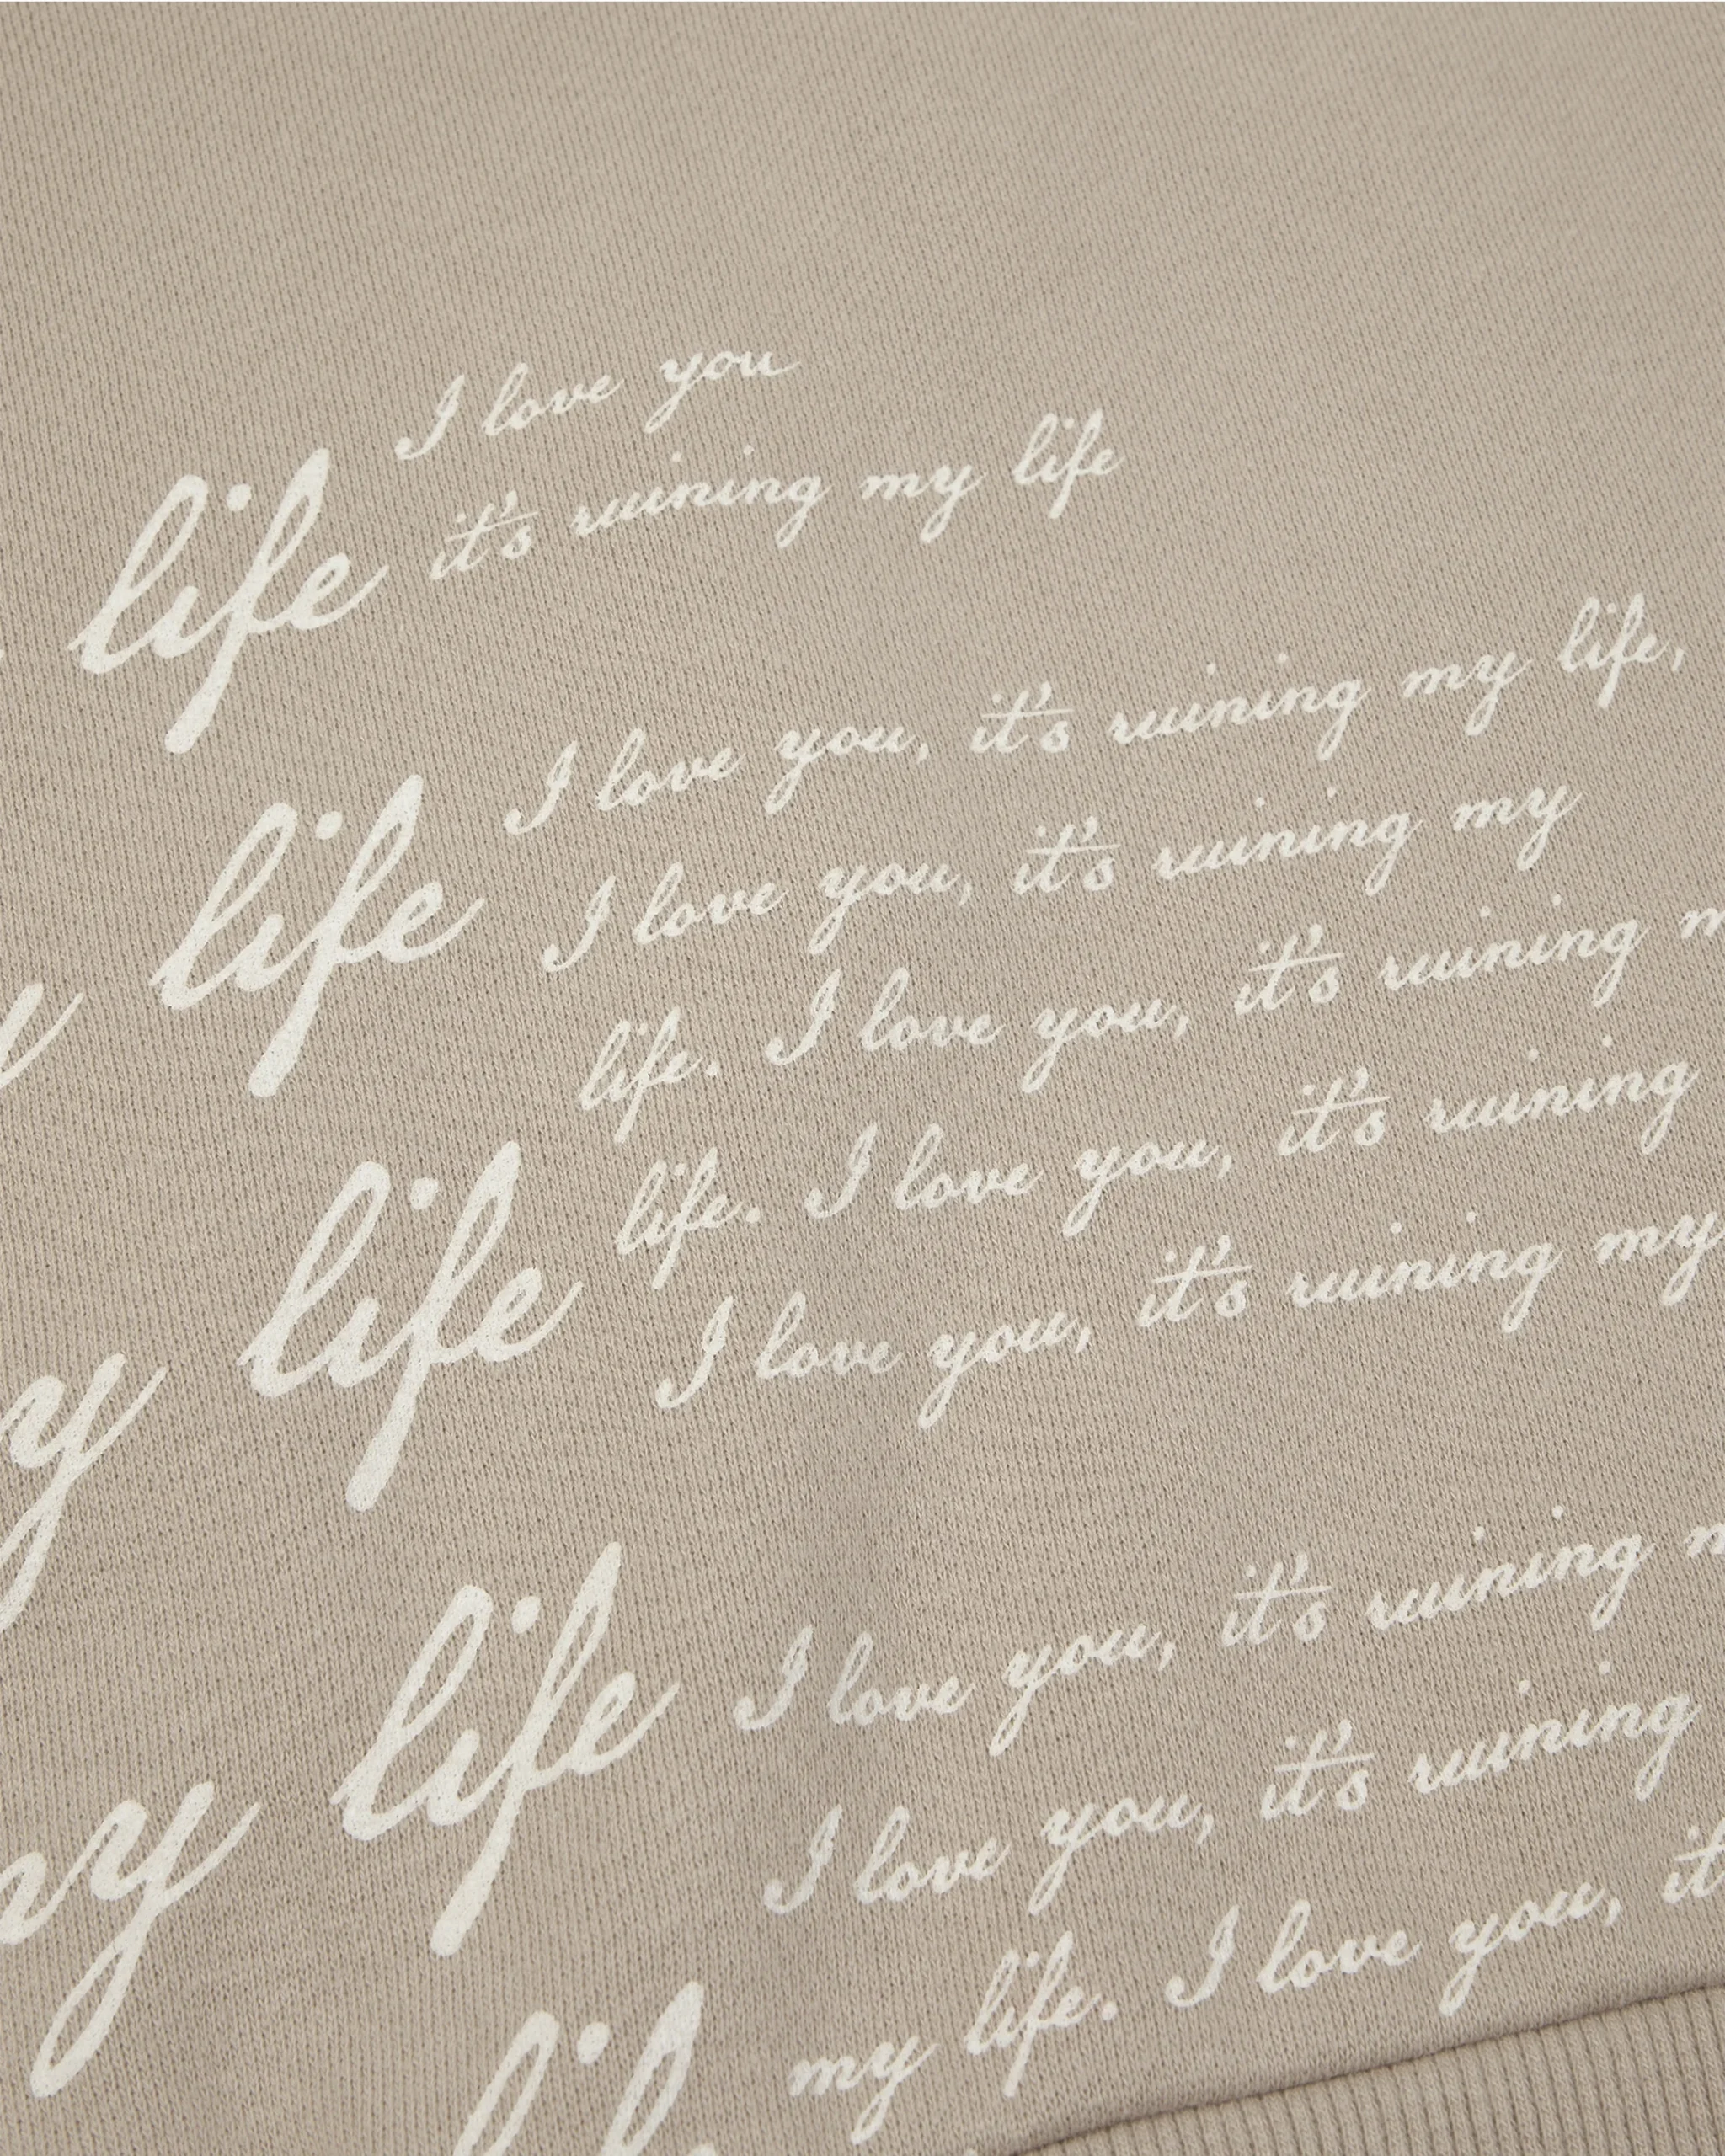 I love you
it's ruining my life
life
I love you, it's ruining my life,
I love you, it's ruining my
life
life. I love you, it's ruining
life. I love you, it's ruining
I love you, it's ruining my
life
y
I love you, it's ruining
I love you, it's ruining
my life. I love you, it
life
my